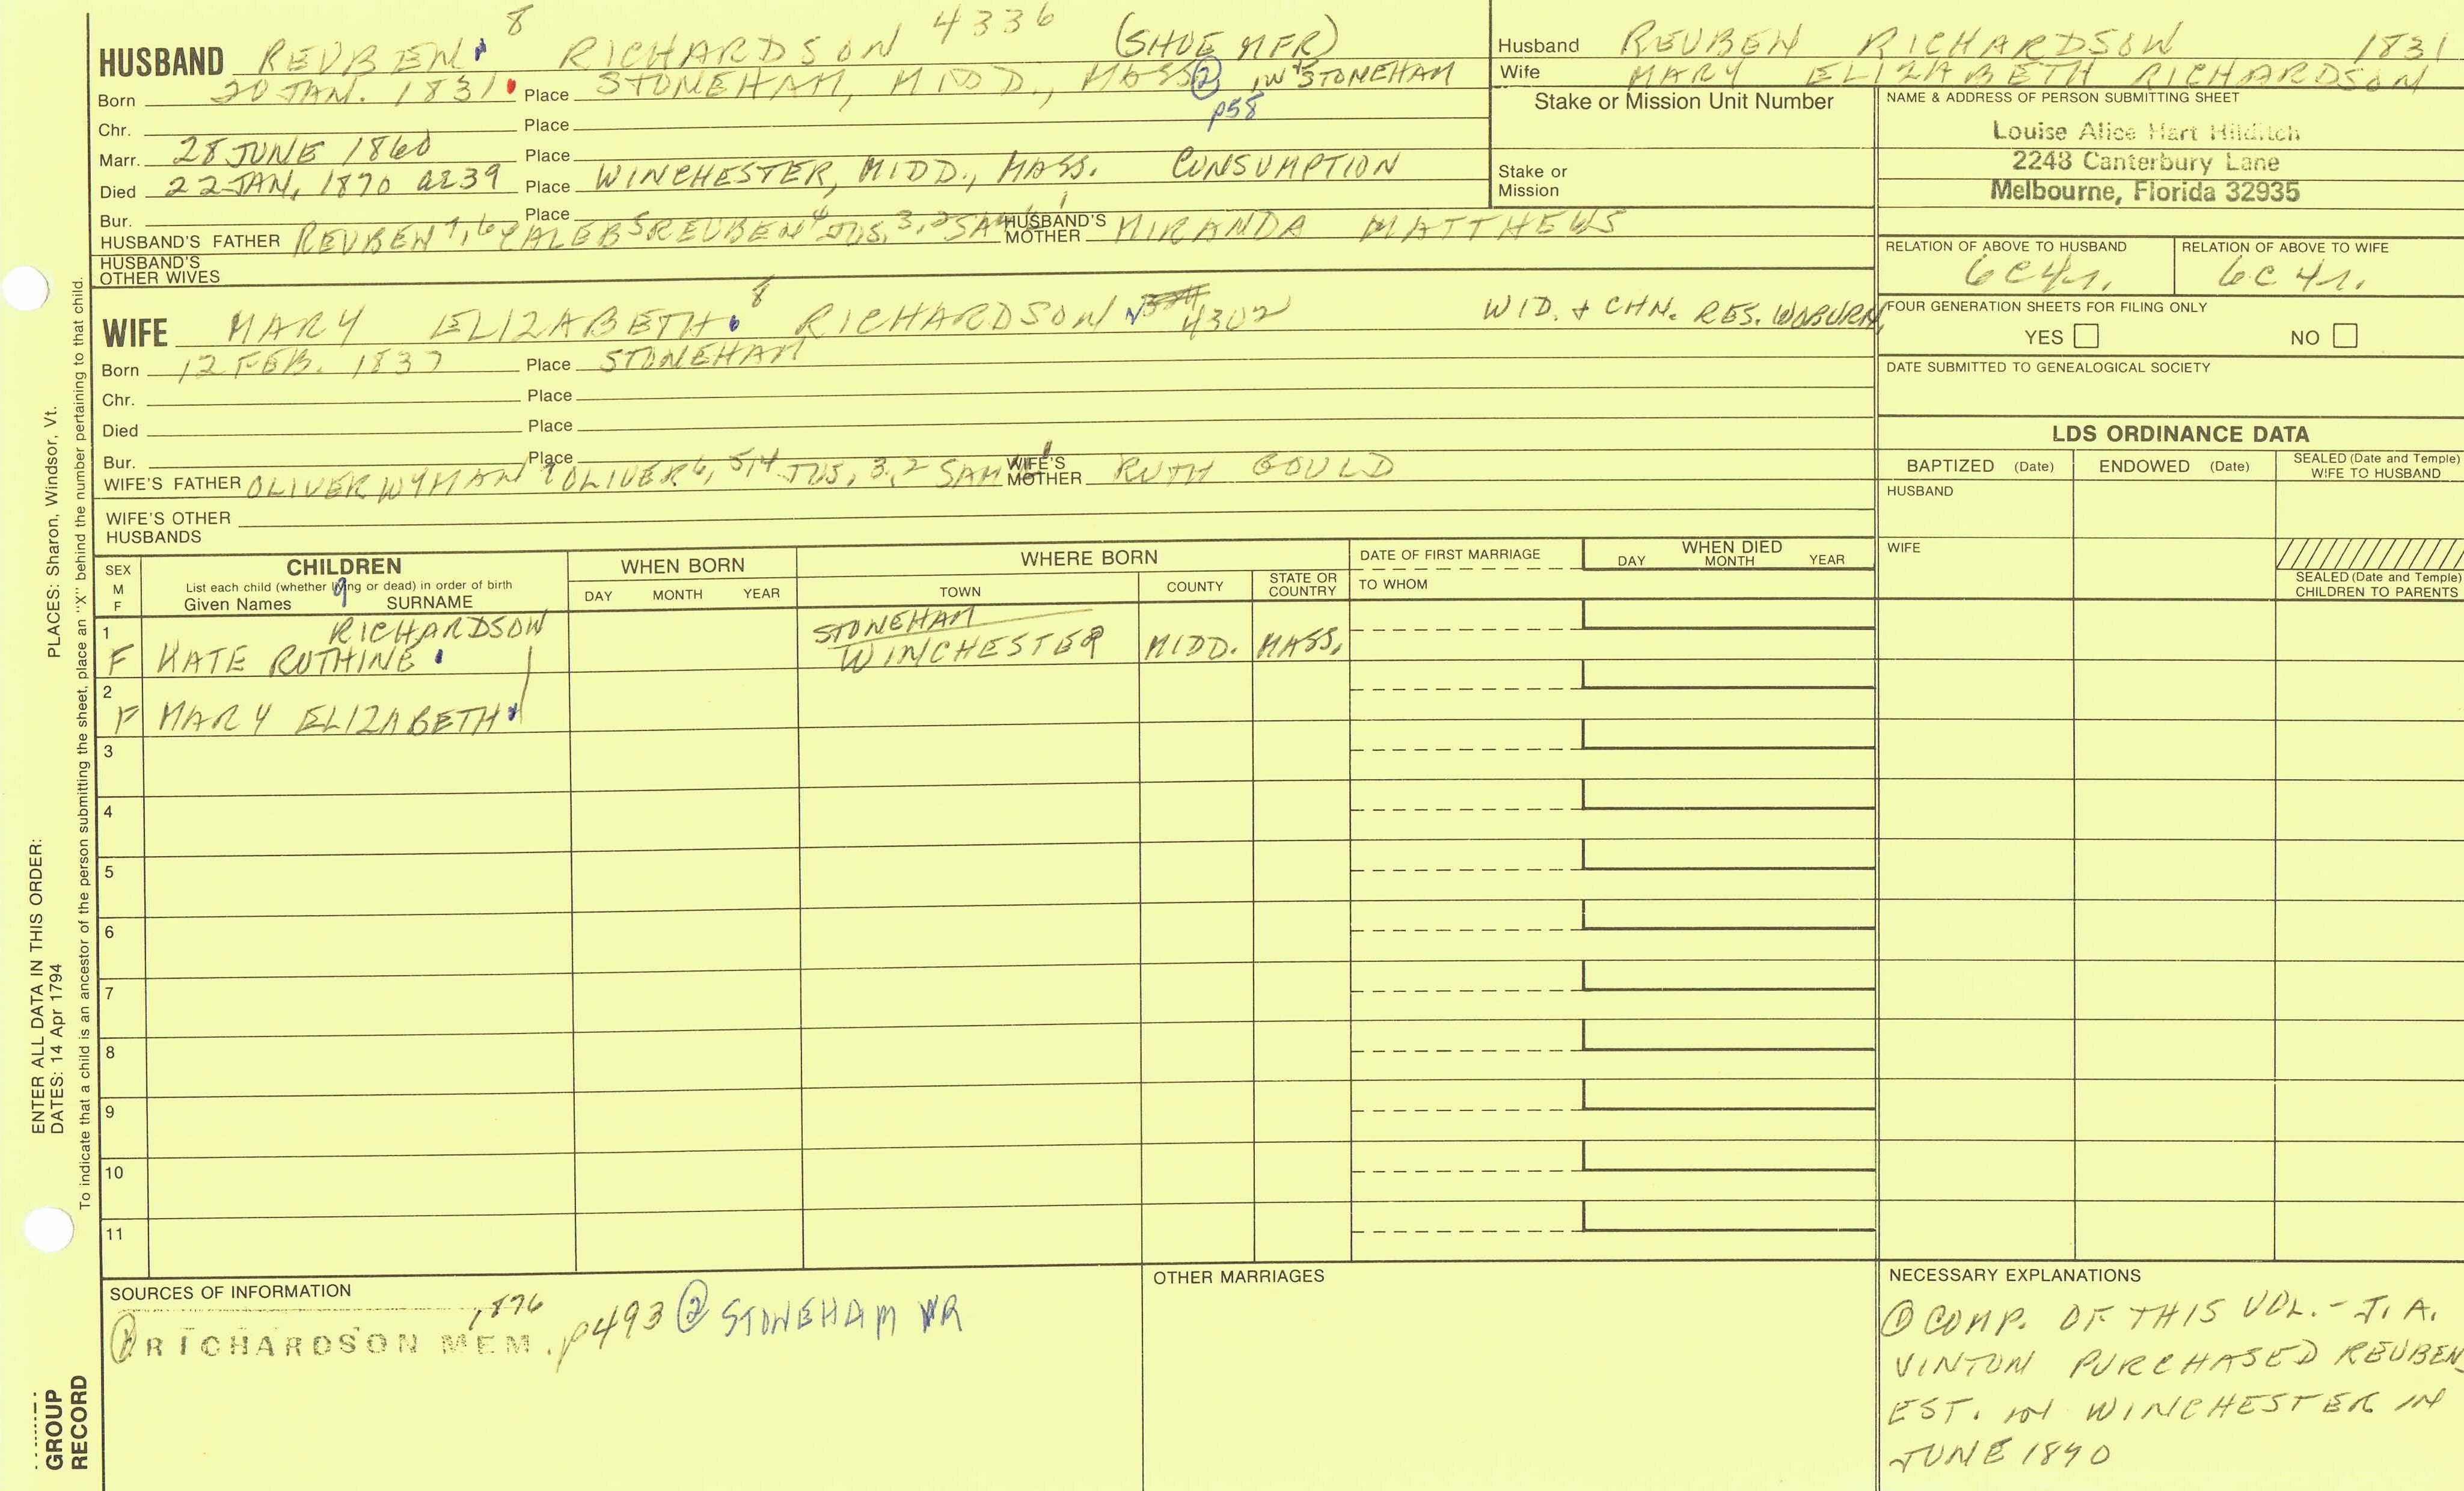 HUSBAND REUBEN 8 RICHARDSON 4336 (SHOE MFR)
Born 20 JAN. 1831 Place STONEHAM, MIDD., MASS ② IN STONEHAM
p58
Chr. Place
Marr. 28 JUNE 1860 Place
Died 22 JAN, 1870 ae39 Place WINCHESTER, MIDD., MASS. CONSUMPTION
Bur. Place
HUSBAND'S FATHER REUBEN 7,6 CALEB 5 REUBEN 4 JUS, 3, 2 SAM 1 HUSBAND'S MOTHER MIRANDA MATTHEWS
HUSBAND'S OTHER WIVES
WIFE MARY ELIZABETH 8 RICHARDSON 4302 WID. + CHN. RES. WOBURN,
Born 12 FEB. 1837 Place STONEHAM
Chr. Place
Died Place
Bur. Place
WIFE'S FATHER OLIVER WYMAN 7 OLIVER 6, 5, 4 JUS, 3, 2 SAM 1 WIFE'S MOTHER RUTH GOULD
WIFE'S OTHER HUSBANDS
Husband REUBEN RICHARDSON 1831
Wife MARY ELIZABETH RICHARDSON
Stake or Mission Unit Number
Stake or Mission
NAME & ADDRESS OF PERSON SUBMITTING SHEET
Louise Alice Hart Hilditch
2243 Canterbury Lane
Melbourne, Florida 32935
RELATION OF ABOVE TO HUSBAND RELATION OF ABOVE TO WIFE
6C4r. 6C4r.
FOUR GENERATION SHEETS FOR FILING ONLY
YES NO
DATE SUBMITTED TO GENEALOGICAL SOCIETY
LDS ORDINANCE DATA
BAPTIZED (Date) ENDOWED (Date) SEALED (Date and Temple) WIFE TO HUSBAND
HUSBAND
WIFE
SEALED (Date and Temple) CHILDREN TO PARENTS
SEX M F CHILDREN WHEN BORN WHERE BORN DATE OF FIRST MARRIAGE WHEN DIED
List each child (whether living or dead) in order of birth
Given Names 9 SURNAME DAY MONTH YEAR TOWN COUNTY STATE OR COUNTRY TO WHOM DAY MONTH YEAR
1 RICHARDSON STONEHAM
F KATE RUTHINE WINCHESTER MIDD. MASS.
2
F MARY ELIZABETH
3
4
5
6
7
8
9
10
11
SOURCES OF INFORMATION
① RICHARDSON MEM. 1876 p493 ② STONEHAM VR
OTHER MARRIAGES
NECESSARY EXPLANATIONS
① COMP. OF THIS VOL. - J. A.
VINTON PURCHASED REUBEN
EST. IN WINCHESTER IN
JUNE 1870
ENTER ALL DATA IN THIS ORDER:
DATES: 14 Apr 1794 PLACES: Sharon, Windsor, Vt.
To indicate that a child is an ancestor of the person submitting the sheet, place an "X" behind the number pertaining to that child.
GROUP
RECORD